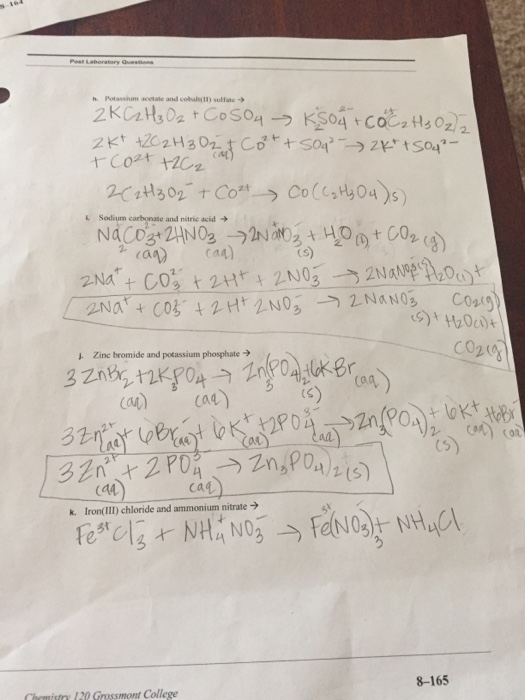 8-164
Post Laboratory Questions
h. Potassium acetate and cobalt(II) sulfate →
2KC2H3O2 + CoSO4 → K2SO4 + CO(C2H3O2)2
2K+ +2C2H3O2- + Co2+ + SO42- → 2K+ + SO42-
+ Co2+ +2C2
(aq)
2C2H3O2- + Co2+ → Co(C2H3O4)s)
i. Sodium carbonate and nitric acid →
Na2CO3 + 2HNO3 → 2NaNO3 + H2O(l) + CO2(g)
(aq) (aq) (s)
2Na+ + CO32- + 2H+ + 2NO3- → 2NaNO3(s) H2O(l)+
CO2(g)
2Na+ + CO32- + 2H+ 2NO3- → 2NaNO3
(s) + H2O(l)+
CO2(g)
j. Zinc bromide and potassium phosphate →
3ZnBr2 + 2K3PO4 → Zn3(PO4)2 + 6KBr
(aq) (aq) (s) (aq)
3Zn2+ + 6Br- + 6K+ + 2PO43- → Zn3(PO4)2 + 6K+ + 6Br-
(aq) (aq) (aq) (aq) (s) (aq) (aq)
3Zn2+ + 2PO43- → Zn3PO4)2(s)
(aq) (aq)
k. Iron(III) chloride and ammonium nitrate →
Fe3+Cl3- + NH4+NO3- → Fe3+(NO3)3 + NH4Cl
8–165
Chemistry 120 Grossmont College